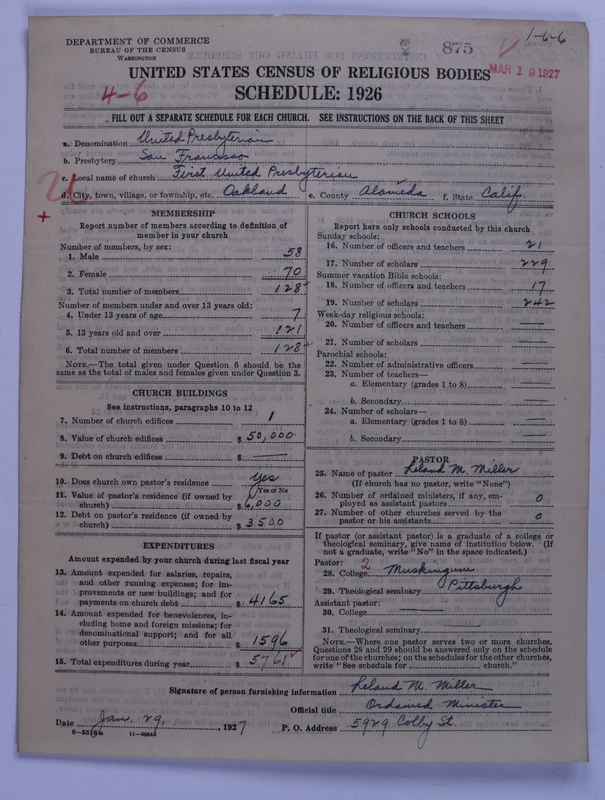 1-6-6
DEPARTMENT OF COMMERCE
BUREAU OF THE CENSUS
WASHINGTON
875
MAR 19 1927
UNITED STATES CENSUS OF RELIGIOUS BODIES
4-6
SCHEDULE: 1926
FILL OUT A SEPARATE SCHEDULE FOR EACH CHURCH. SEE INSTRUCTIONS ON THE BACK OF THIS SHEET
a. Denomination United Presbyterian
b. Presbytery San Francisco
c. Local name of church First United Presbyterian
d. City, town, village, or township, etc. Oakland e. County Alameda f. State Calif.
MEMBERSHIP
Report number of members according to definition of
member in your church
Number of members, by sex:
1. Male 58
2. Female 70
3. Total number of members 128
Number of members under and over 13 years old:
4. Under 13 years of age 7
5. 13 years old and over 121
6. Total number of members 128
NOTE.—The total given under Question 6 should be the
same as the total of males and females given under Question 3.
CHURCH BUILDINGS
See instructions, paragraphs 10 to 12
7. Number of church edifices 1
8. Value of church edifices $ 50,000
9. Debt on church edifices $ —
10. Does church own pastor's residence yes
Yes or No
11. Value of pastor's residence (if owned by
church) $ 6,000
12. Debt on pastor's residence (if owned by
church) $ 3500
EXPENDITURES
Amount expended by your church during last fiscal year
13. Amount expended for salaries, repairs,
and other running expenses; for im-
provements or new buildings; and for
payments on church debt $ 4165
14. Amount expended for benevolences, in-
cluding home and foreign missions; for
denominational support; and for all
other purposes $ 1596
15. Total expenditures during year $ 5761
CHURCH SCHOOLS
Report here only schools conducted by this church
Sunday schools:
16. Number of officers and teachers 21
17. Number of scholars 229
Summer vacation Bible schools:
18. Number of officers and teachers 17
19. Number of scholars 242
Week-day religious schools:
20. Number of officers and teachers —
21. Number of scholars —
Parochial schools:
22. Number of administrative officers —
23. Number of teachers—
a. Elementary (grades 1 to 8) —
b. Secondary —
24. Number of scholars—
a. Elementary (grades 1 to 8) —
b. Secondary —
PASTOR
25. Name of pastor Leland M. Miller
(If church has no pastor, write "None")
26. Number of ordained ministers, if any, em-
ployed as assistant pastors 0
27. Number of other churches served by the
pastor or his assistants 0
If pastor (or assistant pastor) is a graduate of a college or
theological seminary, give name of institution below. (If
not a graduate, write "No" in the space indicated.)
Pastor: 2
28. College Muskingum
29. Theological seminary Pittsburgh
Assistant pastor:
30. College —
31. Theological seminary —
NOTE.—Where one pastor serves two or more churches,
Questions 28 and 29 should be answered only on the schedule
for one of the churches; on the schedules for the other churches,
write "See schedule for church."
Signature of person furnishing information Leland M. Miller
Official title Ordained Minister
Date Jan. 29, 1927 P. O. Address 5929 Colby St.